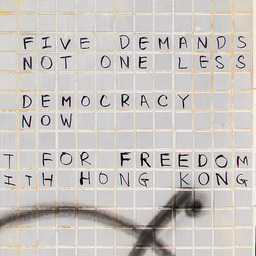 FIVE DEMANDS
NOT ONE LESS
DEMOCRACY
NOW
T FOR FREEDOM
ITH HONG KONG